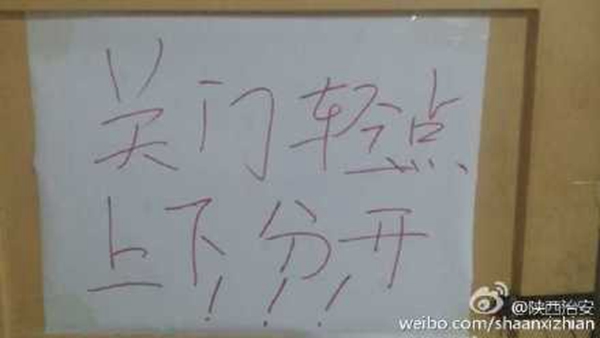 关门轻点
上下分开
!!!
@陕西治安
weibo.com/shaanxizhian